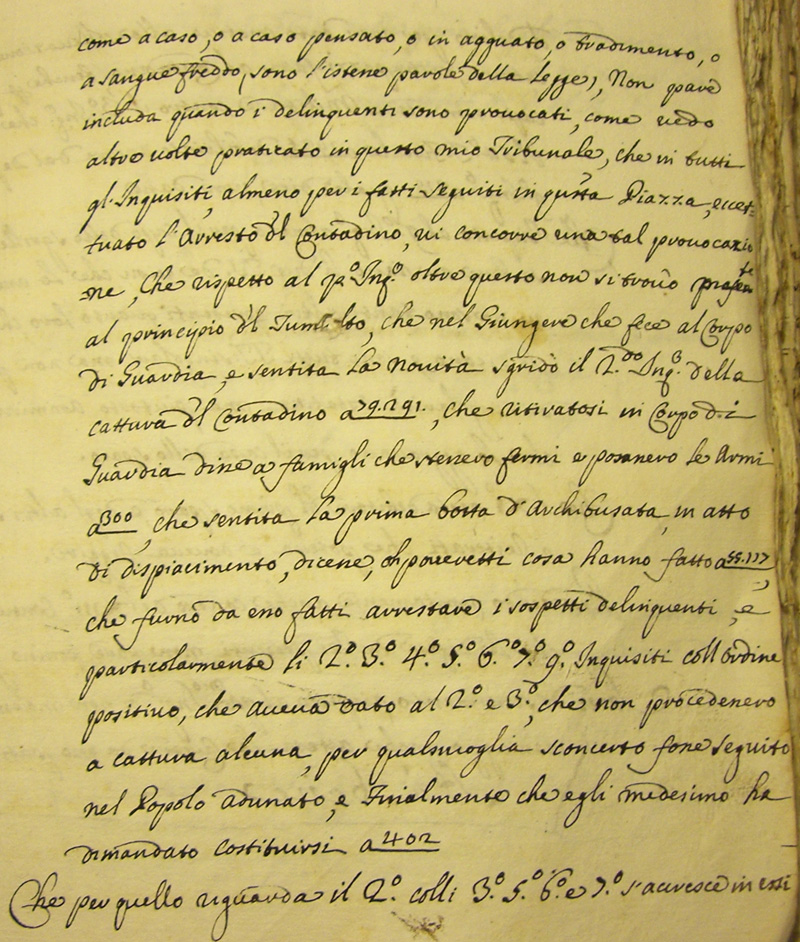 come a caso, o a caso pensato, o in agguato, o tradimento, o
a sangue freddo, sono l'istesse parole della legge, Non pare
includa quando i delinquenti sono provocati, come vedo
altre volte praticato in questo mio Tribunale, che in tutti
gl'Inquisiti, almeno per i fatti seguiti in questa Piazza, eccet-
tuato l'Arresto del Contadino, vi concorre una tal provocazio
ne, Che rispetto al p.o Inq.o oltre questo non si trovò presente
al principio del Tumulto, che nel Giungere che fece al Corpo
di Guardia, e sentita la novità sgridò il 2.do Inq.o della
cattura del Contadino a 79.291., che ritiratosi in Corpo di
Guardia disse a famigli che stessero fermi e posassero le Armi
a 300, che sentita la prima botta d'Archibusata, in atto
di dispiacimento, dicesse, oh poveretti cosa hanno fatto a 55.117,
che furno da esso fatti arrestare i sospetti delinquenti, e
particolarmente li 2.o 3.o 4.o 5.o 6.o 7.o 9.o Inquisiti coll'ordine
positivo, che aveva dato al 2.o e 3.o, che non procedessero
a cattura alcuna, per qualsivoglia sconcerto fosse seguito
nel Popolo adunato, e Finalmente che egli medesimo ha
dimandato costituirsi a 402
Che per quello riguarda il 2.o colli 3.o 5.o 6.o e 7.o s'accresce in essi